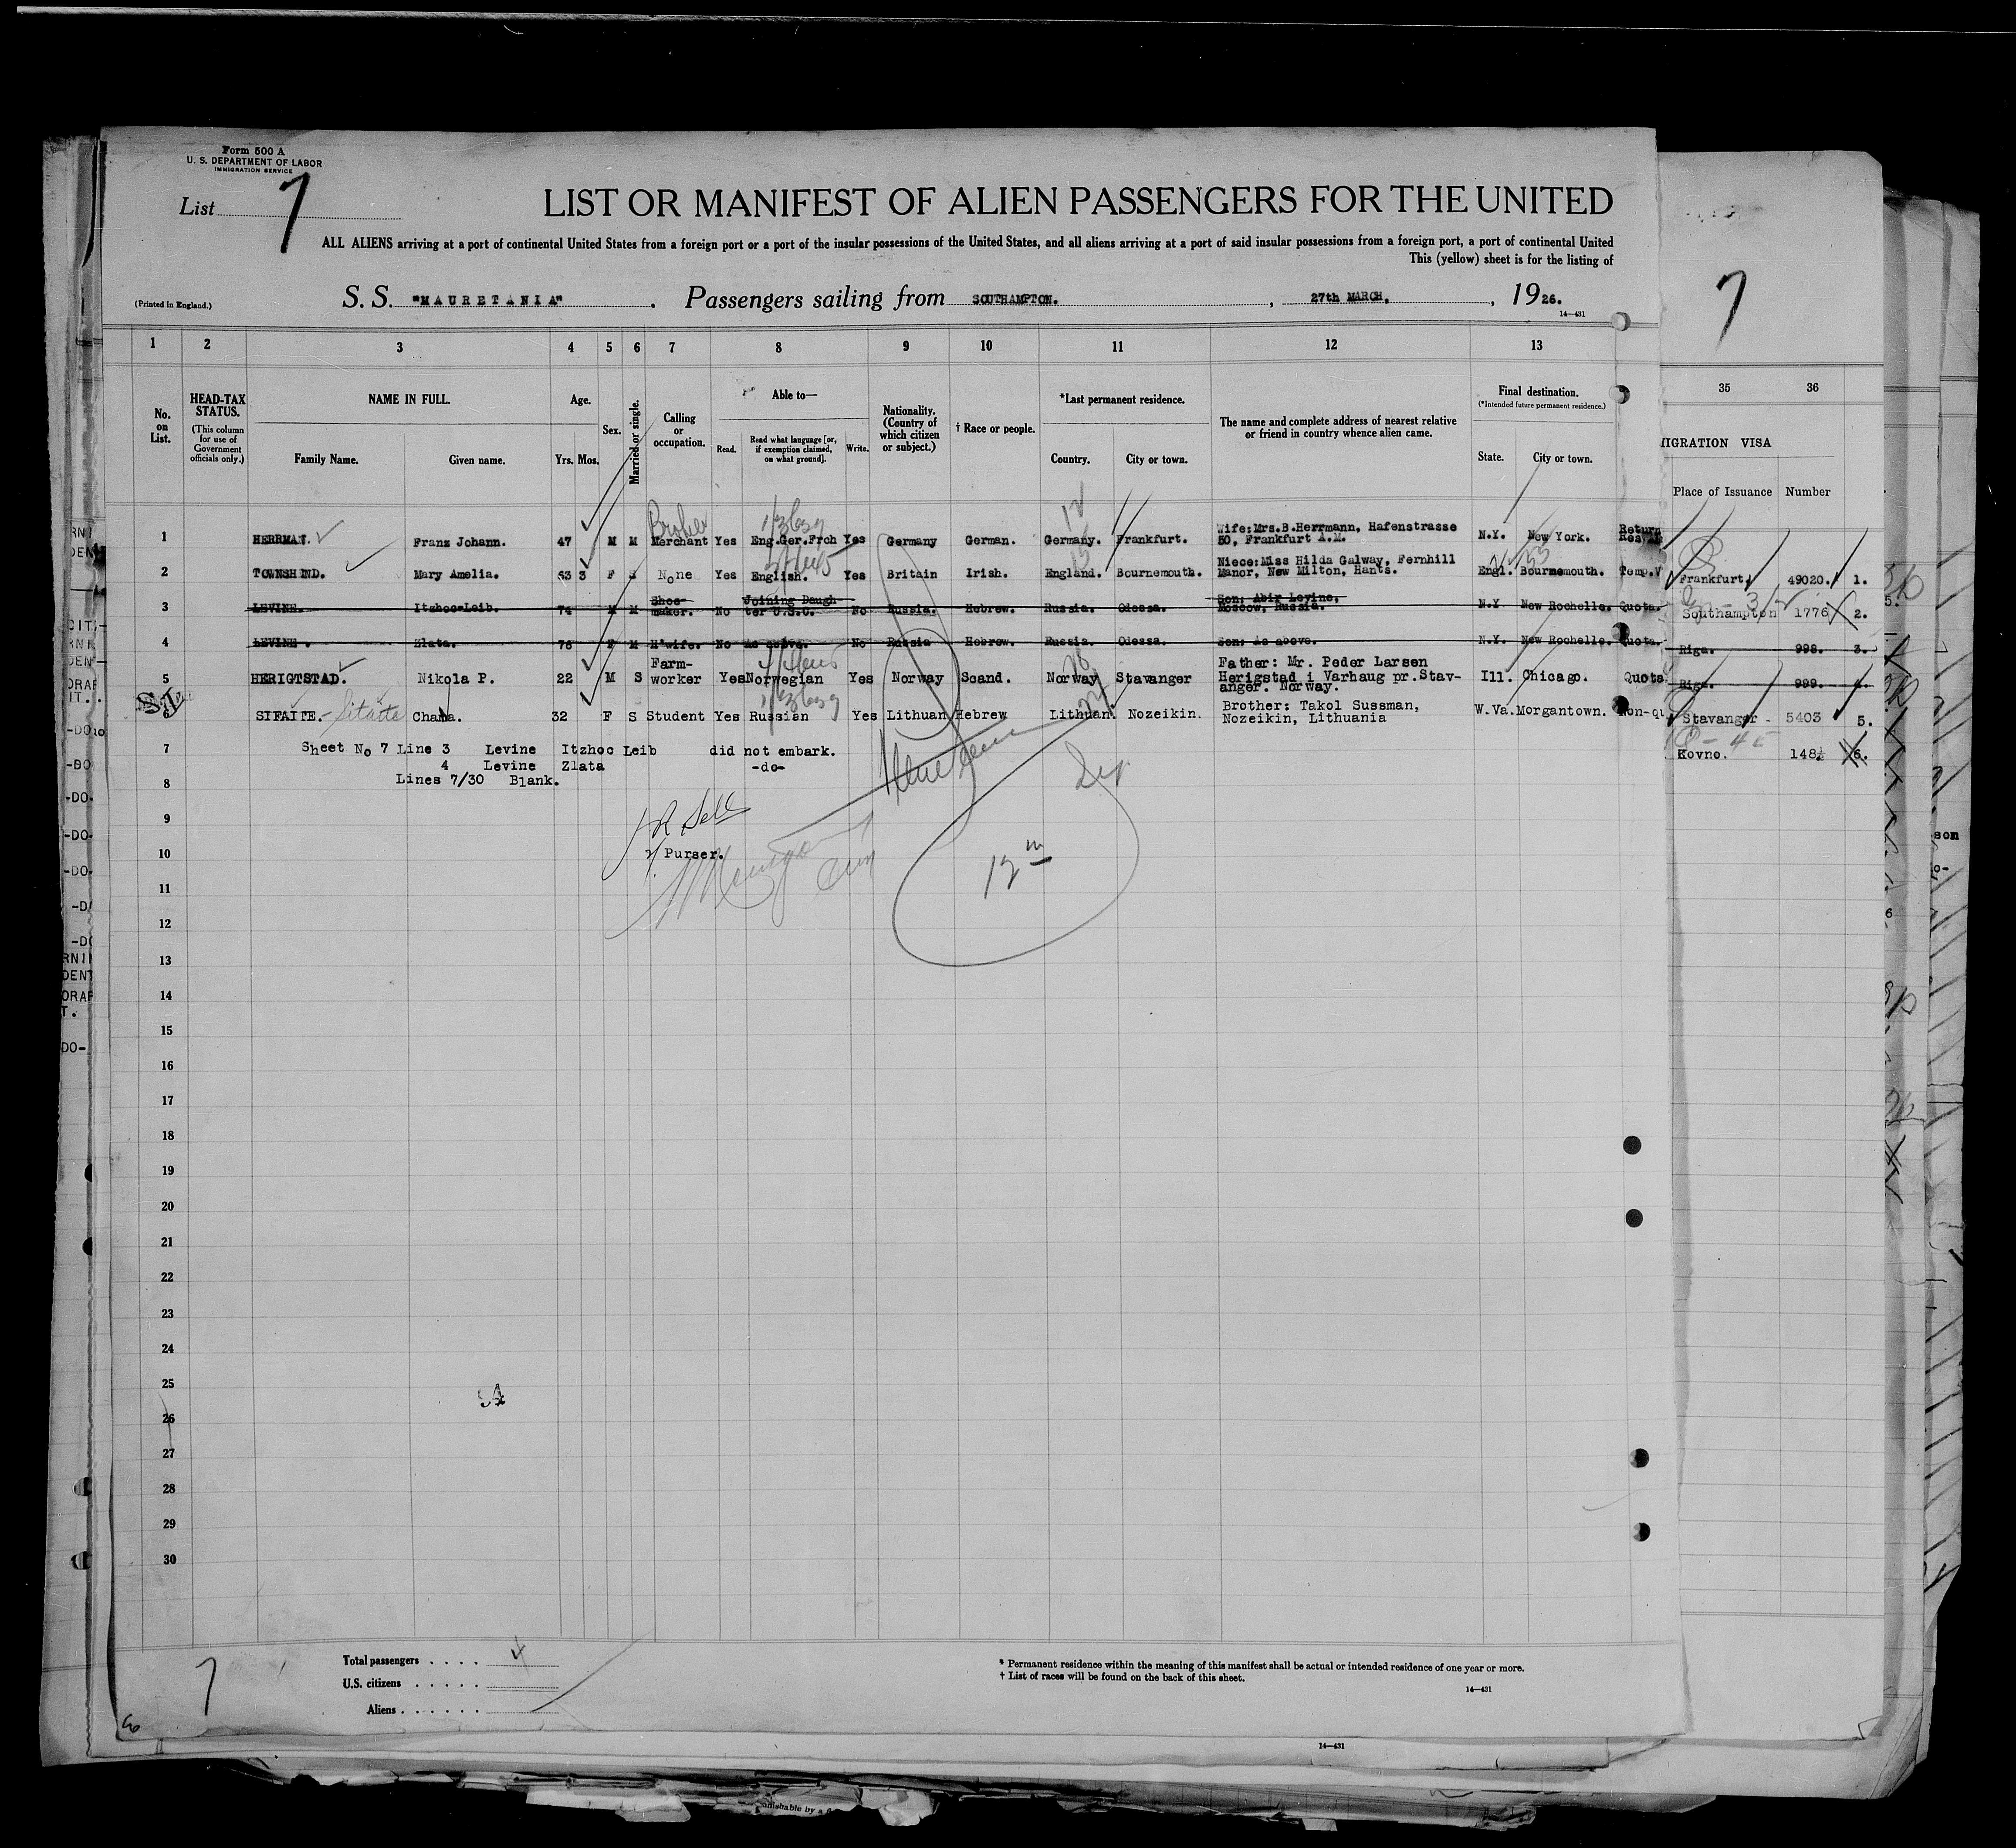 Form 500 A
U. S. DEPARTMENT OF LABOR
IMMIGRATION SERVICE
List 7
LIST OR MANIFEST OF ALIEN PASSENGERS FOR THE UNITED
ALL ALIENS arriving at a port of continental United States from a foreign port or a port of the insular possessions of the United States, and all aliens arriving at a port of said insular possessions from a foreign port, a port of continental United
This (yellow) sheet is for the listing of
(Printed in England.)
S. S. "MAURETANIA". Passengers sailing from SOUTHAMPTON. , 27th MARCH. , 1926.
14—431
7
1 2 3 4 5 6 7 8 9 10 11 12 13
35 36
No. on List.
HEAD-TAX STATUS.
(This column for use of Government officials only.)
NAME IN FULL.
Family Name. Given name.
Age.
Yrs. Mos.
Sex.
Married or single.
Calling or occupation.
Able to—
Read. Read what language [or, if exemption claimed, on what ground]. Write.
Nationality. (Country of which citizen or subject.)
† Race or people.
*Last permanent residence.
Country. City or town.
The name and complete address of nearest relative or friend in country whence alien came.
Final destination.
(*Intended future permanent residence.)
State. City or town.
IGRATION VISA
Place of Issuance Number
1 HERRMAN. Franz Johann. 47 M M Merchant Yes Eng.Ger.Frch Yes Germany German. Germany. Frankfurt. Wife:Mrs.B.Herrmann, Hafenstrasse 50, Frankfurt A.M. N.Y. New York. Return
2 TOWNSHEND. Mary Amelia. 53 3 F S None Yes English. Yes Britain Irish. England. Bournemouth. Niece:Miss Hilda Galway, Fernhill Manor, New Milton, Hants. Engl. Bournemouth. Temp.V
3 LEVINE. Itzhoc-Leib. 74 M M Shoe-maker. No Joining Daugh ter U.S.C. No Russia. Hebrew. Russia. Odessa. Son: Abir Levine, Moscow, Russia. N.Y New Rochelle. Quota.
4 LEVINE. Zlata. 76 F M H'wife. No As above. No Russia Hebrew. Russia. Odessa. Son: As above. N.Y. New Rochelle. Quota.
5 HERIGTSTAD. Nikola P. 22 M S Farm-worker Yes Norwegian Yes Norway Scand. Norway Stavanger Father: Mr. Peder Larsen Herigstad i Varhaug pr.Stav-anger. Norway. Ill. Chicago. Quota
6 SIFAITE. Sitaite Chana. 32 F S Student Yes Russian Yes Lithuan Hebrew Lithuan. Nozeikin. Brother: Takol Sussman, Nozeikin, Lithuania W.Va. Morgantown. Non-qu
Frankfurt. 49020. 1.
Southampton 1776 2.
Riga. 998. 3.
Riga. 999. 4.
Stavanger - 5403 5.
Kovno. 148 6.
7 Sheet No 7 Line 3 Levine Itzhoc Leib did not embark.
4 Levine Zlata -do-
8 Lines 7/30 Blank.
9
10 Purser.
12th
11
12
13
14
15
16
17
18
19
20
21
22
23
24
25
26
27
28
29
30
Total passengers . . . .
U.S. citizens . . . . .
Aliens . . . . . .
7
* Permanent residence within the meaning of this manifest shall be actual or intended residence of one year or more.
† List of races will be found on the back of this sheet.
14—431
14—431